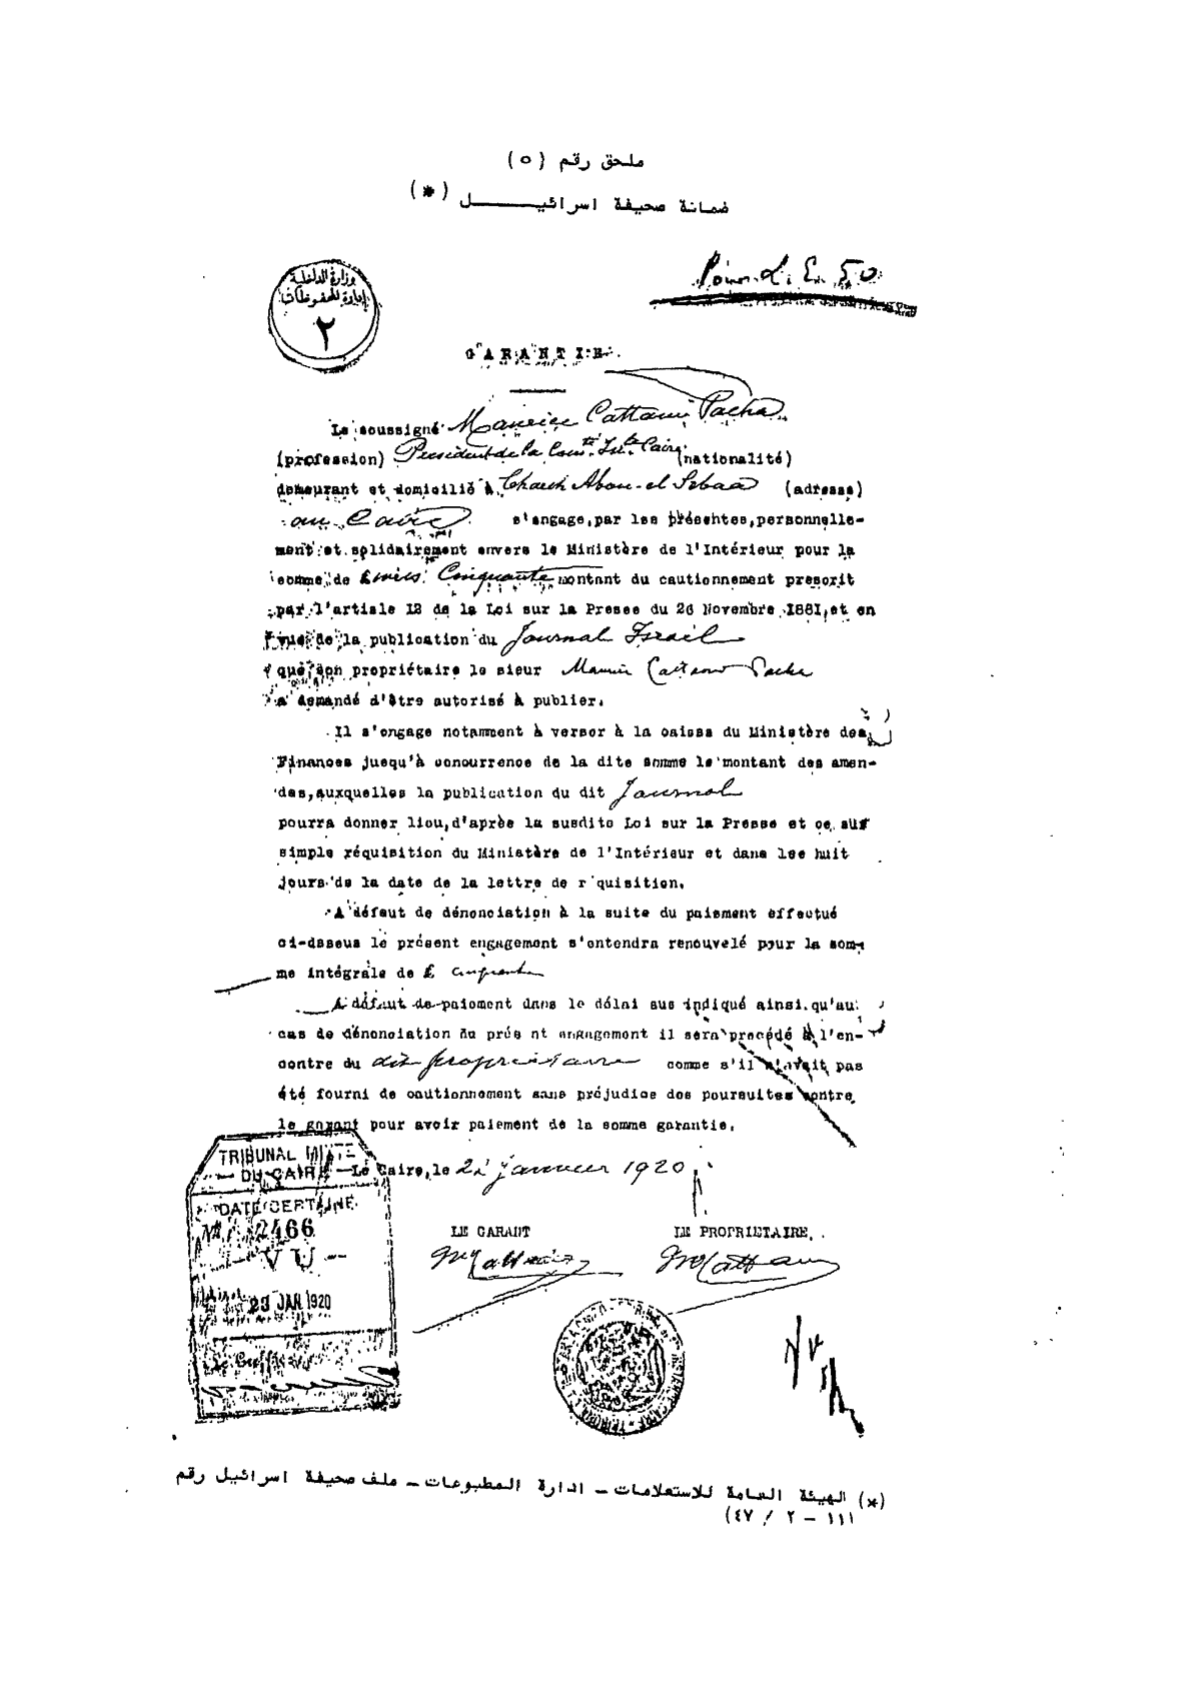 ملحق رقم (٥)
ضمانة صحيفة اسرائيـــــــل (*)
وزارة الداخلية
إدارة المحفوظات
٢
Pour L.E. 50
GARANTIE.
Le soussigné Maurice Cattaui Pacha
(profession) Président de la Comté Isrte Caire (nationalité)
demeurant et domicilié à Chareh Abou-el Sebaa (adresse)
au Caire s'engage, par les présentes, personnelle-
ment et solidairement envers le Ministère de l'Intérieur pour la
somme de Livres Cinquante montant du cautionnement prescrit
par l'article 12 de la Loi sur la Presse du 26 Novembre 1881, et en
vue de la publication du Journal Israël
que son propriétaire le sieur Maurice Cattaui Pacha
a demandé d'être autorisé à publier.
Il s'engage notamment à verser à la caisse du Ministère des
Finances jusqu'à concurrence de la dite somme le montant des amen-
des, auxquelles la publication du dit Journal
pourra donner lieu, d'après la susdite Loi sur la Presse et ce sur
simple réquisition du Ministère de l'Intérieur et dans les huit
jours de la date de la lettre de r quisition.
A défaut de dénonciation à la suite du paiement effectué
ci-dessus le présent engagement s'entendra renouvelé pour la som-
me intégrale de £ cinquante
A défaut de paiement dans le délai sus indiqué ainsi qu'au
cas de dénonciation du prés nt engagement il sera precédé à l'en-
contre du dit propriétaire comme s'il n'avait pas
été fourni de cautionnement sans préjudice des poursuites contre
le garant pour avoir paiement de la somme garantie.
Le Caire, le 22 janvier 1920
TRIBUNAL MIXTE
DU CAIRE
DATE CERTAINE
2466
VU
23 JAN 1920
LE GARANT LE PROPRIETAIRE.
MCattaui MCattaui
(*) الهيئة العامة للاستعلامات – ادارة المطبوعات – ملف صحيفة اسرائيل رقم
(٤٧ / ٢ – ١١)